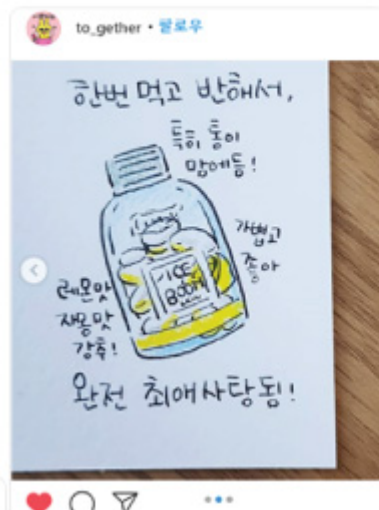 to_gether • 팔로우
한번 먹고 반해서,
특히 통이
맘에듬!
가볍고
좋아
ICE
BOOM
레몬맛
자몽맛
강추!
완전 최애사탕됨!